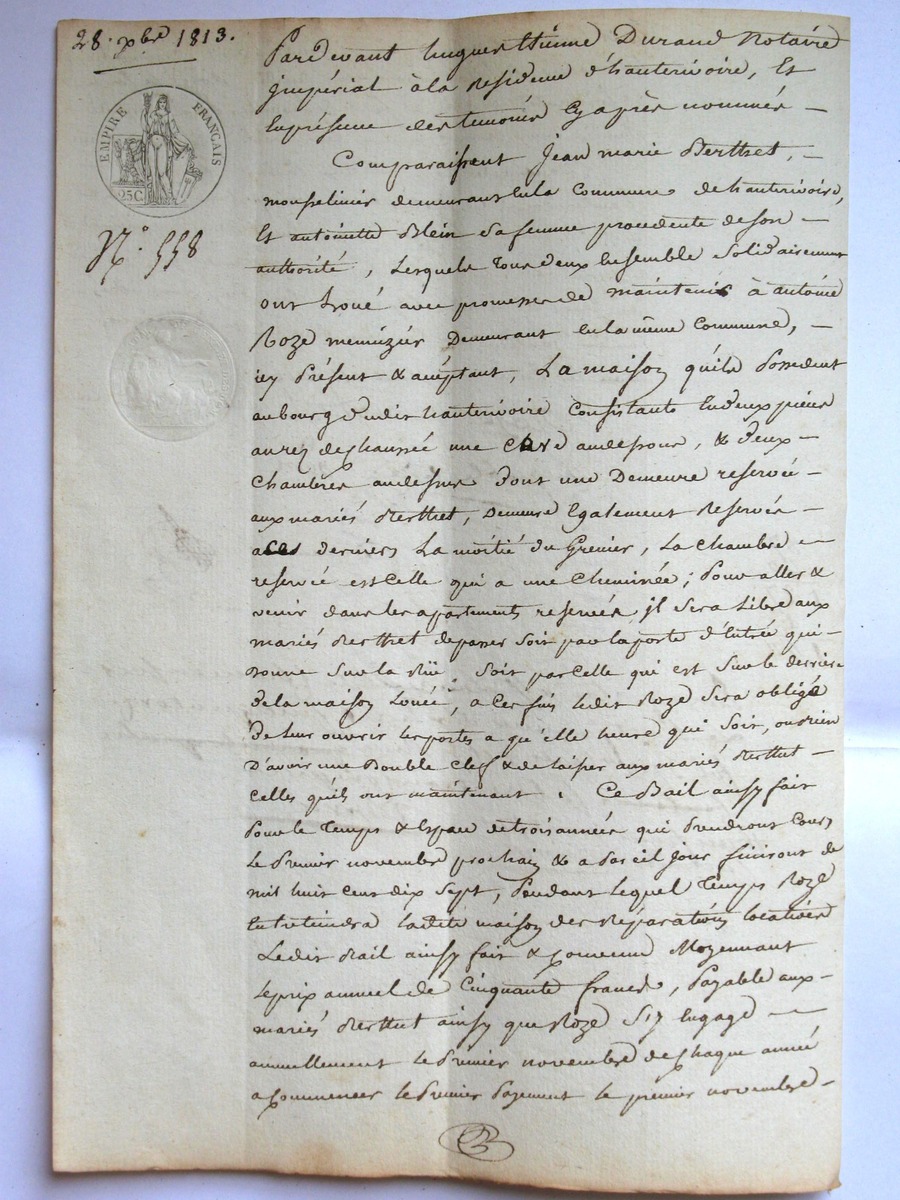 28. xbre 1813.
EMPIRE FRANÇAIS
25C
N°. 558
Pardevant hugues Etienne Durand Notaire
jmpérial à la Residence d'hauterivoire, Et
En présence des temoins Cy après nommés —
Comparaissent Jean marie Berthet, —
mousselinier demeurant En la Commune de hauterivoire,
Et antoinette Blein sa femme procedente de son —
authorité, Lesquels tous deux Ensemble solidairement
ont Loué avec promesse de maintenir à antoine
Roze menuzier Demeurant En la même Commune, —
icy Présent & acceptant, La maison qu'ils Possedent
au bourg dudit hauterivoire Consistante En deux pieces
au rez de chaussée une cave au dessous, & deux —
Chambres au dessus dont une Demeure reservée —
aux mariés Berthet, Demeure Egalement Reservée —
a ces derniers La moitié du Grenier, La chambre —
reservée est Celle qui a une cheminée; Pour aller &
venir dans les apartements reservés, jl sera Libre aux
mariés Berthet de passer soit par la porte d'Entrée qui —
Donne sur la Rüe, soit par Celle qui est sur le derriere
de la maison Louée, a Ces fins ledit Roze sera obligé
de leur ouvrir les portes a qu'elle heure que soit, ou bien
D'avoir une Double clef & de laisser aux mariés Berthet —
Celles qu'ils ont maintenant. Ce Bail ainsy fait
Pour le temps & Espace de trois années qui Prendront Cours
Le Premier novembre prochain & a Pareil jour finiront de
mil huit cent dix sept, Pendant lequel temps Roze
Entretiendra ladite maison des Réparations locatives
Ledit Bail ainsy fait & convenu Moyennant
Le prix annuel de Cinquante francs, Payable aux —
mariés Berthet ainsy que Roze s'y Engage —
annuellement le Premier novembre de chaque année
a Commencer le Premier Payement le premier novembre —